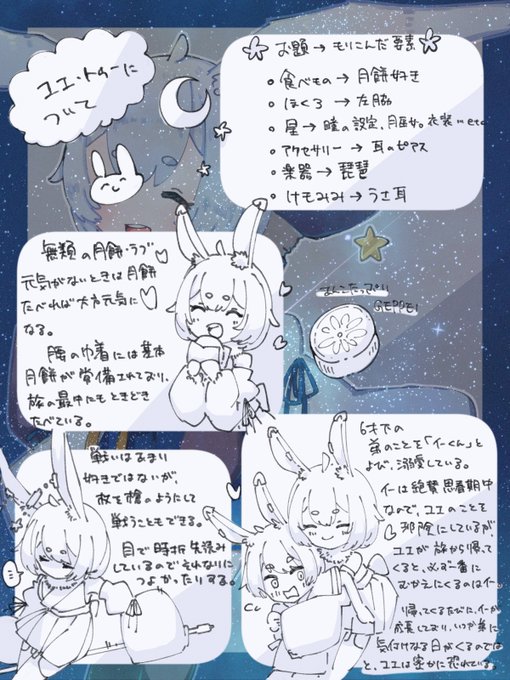 ユエ・トゥーに
ついて
お題→もりこんだ要素
・食べもの→月餅好き
・ほくろ→左脇
・星→瞳の設定、月匠的衣装…etc
・アクセサリー→耳のピアス
・楽器→琵琶
・けもみみ→うさ耳
無類の月餅ラブ
元気がないときは月餅
たべれば大方元気に
なる。
腰の巾着には基本
月餅が常備されており、
旅の最中にもときどき
たべている。
あんこたっぷり
GEPPEI
戦いはあまり
好きではないが、
杖を槍のようにして
戦うこともできる。
目で時折先読み
しているのでそれなりに
つよかったりする。
6才下の
弟のことを「イーくん」と
よび、溺愛している。
イーは絶賛思春期中
なので、ユエのことを
邪険にしているが、
ユエが旅から帰って
くると、必ず一番に
むかえにくるのはイー。
帰ってくるたびに、イーが
成長しており、いつか弟に
気付けなくなる日がくるのでは
と、ユエは密かに恐れている。